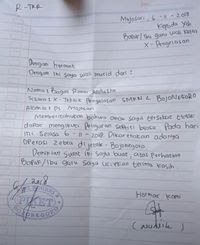 R-TKR
Mejosari, 6-11-2018
Kepada Yth
Bapak/Ibu guru wali kelas
X-Pengelasan
Dengan Hormat
Dengan ini saya wali murid dari :
Nama : Bagus
Teknik Pengelasan SMKN 2 Bojonegoro
Alamat :
Memberitahukan bahwa anak saya tersebut tidak
dapat mengikuti Pelajaran seperti biasa Pada hari
ini Selasa 6-11-2018 Dikarenakan adanya
Operasi Zebra di Bojonegoro
Demikian Surat ini saya buat, atas Perhatian
Bapak/Ibu guru saya ucapkan terima kasih
Hormat kami
PIKET